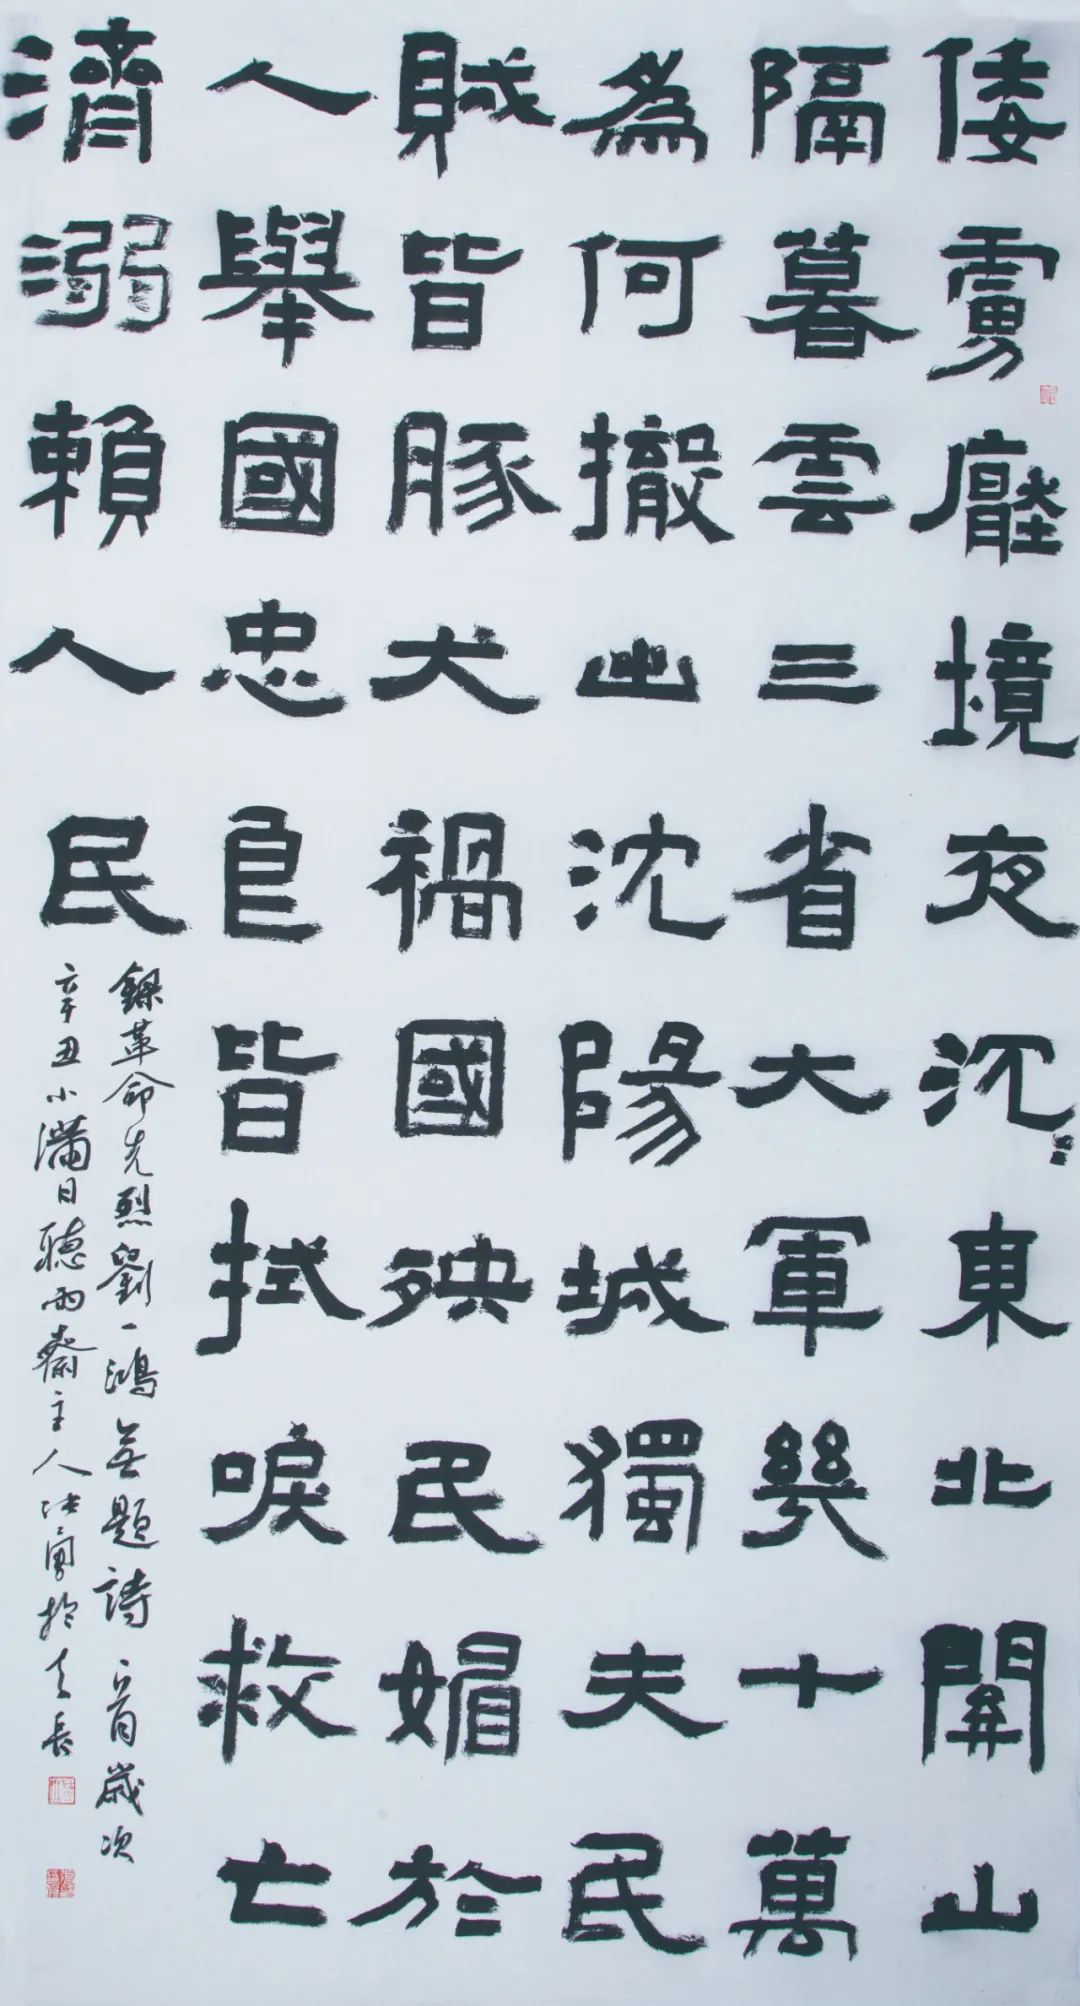 倭虜壓境夜沉〻東北關山
隔暮雲三省大軍幾十萬
為何撤出沈陽城獨夫民
賊皆豚犬禍國殃民媚於
人舉國忠良皆拭唳救亡
濟溺賴人民
錄革命先烈劉一鴻無題詩一首歲次
辛丑小滿日聽雨齋主人於天長